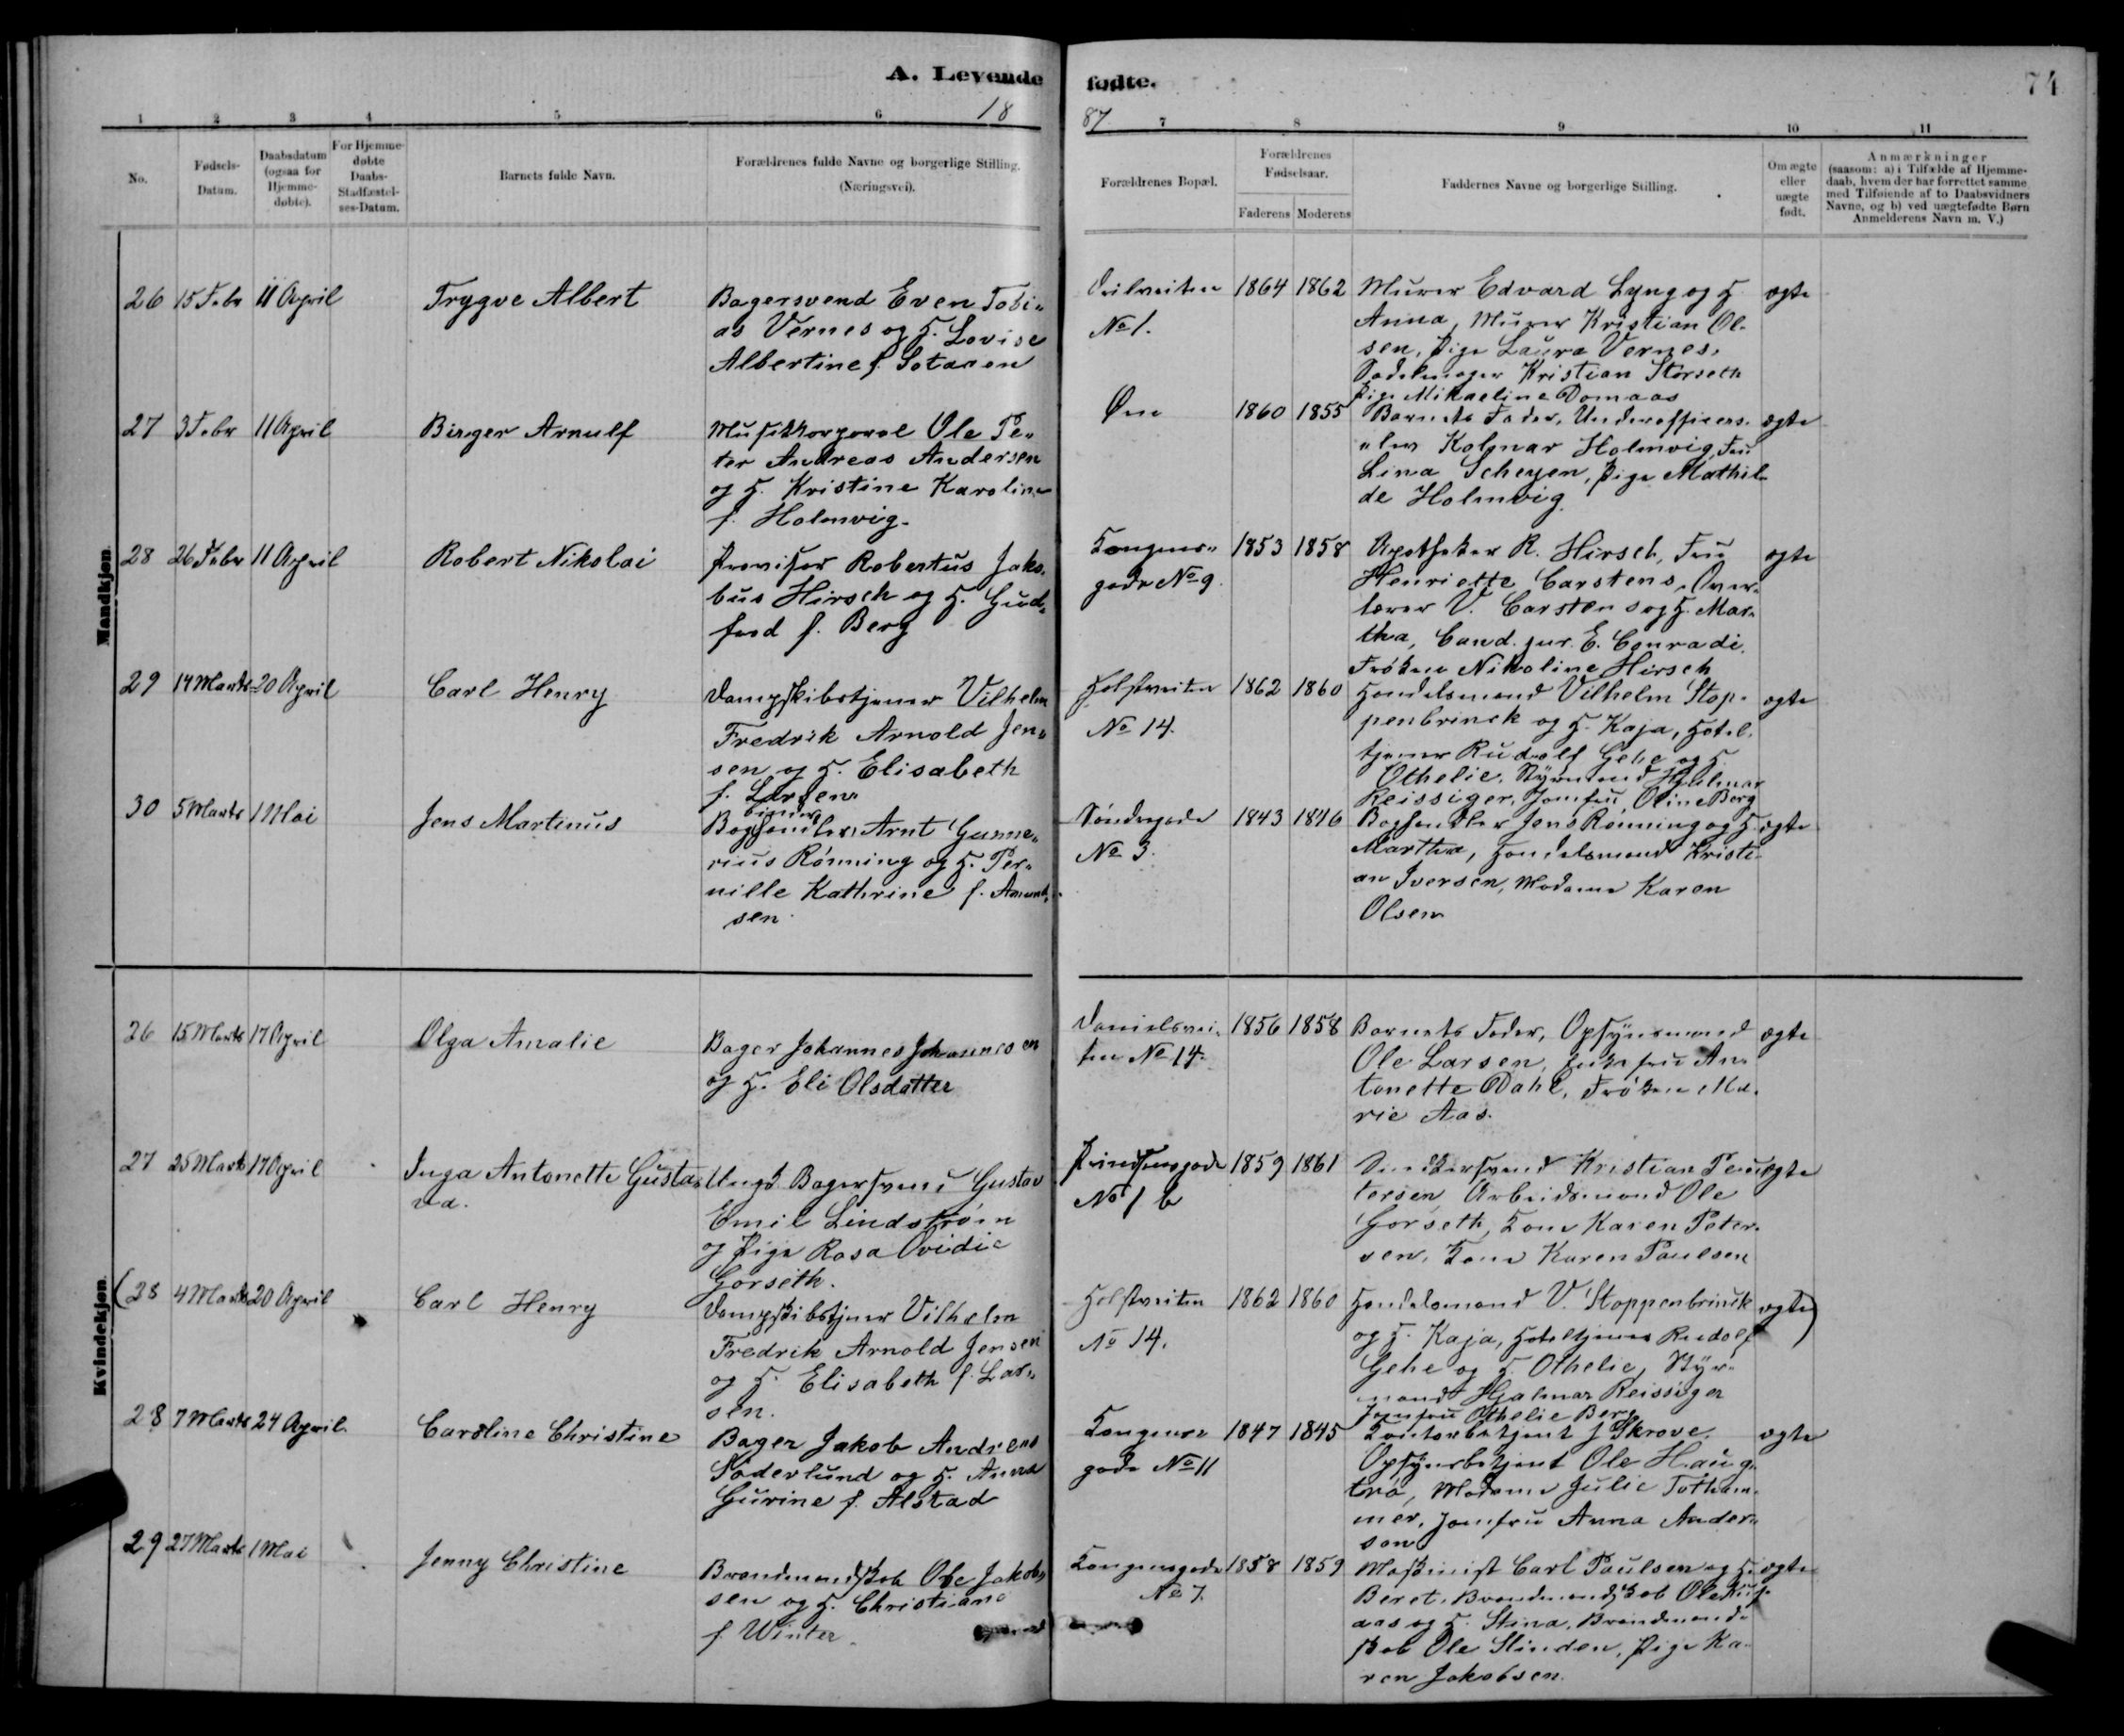 A. Levende fødte.
74
18 87
1 2 3 4 5 6 7 8 9 10 11
No.
Fødsels-
Datum.
Daabsdatum
(ogsaa for
Hjemme-
døbte).
For Hjemme-
døbte
Daabs-
Stadfæstel-
ses-Datum.
Barnets fulde Navn.
Forældrenes fulde Navne og borgerlige Stilling.
(Næringsvei).
Forældrenes Bopæl.
Forældrenes
Fødselsaar.
Faderens Moderens
Faddernes Navne og borgerlige Stilling.
Om ægte
eller
uægte
født.
Anmærkninger
(saasom: a) i Tilfælde af Hjemme-
daab, hvem der har forrettet samme
med Tilføiende af to Daabsvidners
Navne, og b) ved uægtefødte Børn
Anmelderens Navn m. V.)
Mandkjøn
26 15 Febr 11 April
Trygve Albert
Bagersvend Even Tobi-
as Vernes og H. Lovise
Albertine f. Sotaaen
No 1.
1864 1862
Murer Edvard Lyng og H
Anna, Murer Kristian Ol-
sen, Pige Laura Vernes,
Sadelmager Kristian Storseth
Pige Mikaeline Domaas
ægte
27 3 Febr 11 April
Birger Arnulf
Musikkorporal Ole Pe-
ter Andreas Andersen
og H. Kristine Karoline
f. Holmvig.
Øen
1860 1855
Barnets Fader, Underofficers-
elev Kolmar Holmvig, Fru
Lina Scheyen, Pige Mathil-
de Holmvig
ægte
28 26 Febr 11 April
Robert Nikolai
Provisor Robertus Jako-
bus Hirsch og H. Gud-
f. Berg
Kongens-
gade No 9.
1853 1858
Apotheker R. Hirsch, Fru
Henriette Carstens, Over-
lærer V. Carstens og H. Mar-
tha, Cand. jur. E. Conradi.
Frøken Nikoline Hirsch
ægte
29 14 Marts 20 April
Carl Henry
Dampskibstjener Vilhelm
Fredrik Arnold Jen-
sen og H. Elisabeth
f. Larsen
Holstveiten
No 14.
1862 1860
Handelsmand Vilhelm Stop-
penbrinck og H. Kaja, Hotel-
tjener Rudolf Gehe og H.
Othelie, Styrmand Hjalmar
Reissiger, Jomfru Oline Berg
ægte
30 5 Marts 1 Mai
Jens Martinus
binder
Boghandler Arnt Gunne-
rius Rønning og H. Per-
nille Kathrine f. Amund-
sen.
Søndregade
No 3.
1843 1846
Boghandler Jens Rønning og H.
Martha, Handelsmand Kristi-
an Iversen, Madame Karen
Olsen
ægte
Kvindekjøn
26 15 Marts 17 April
Olga Amalie
Bager Johannes Johannesen
og H. Eli Olsdatter
Danielsvei-
ten No 14.
1856 1858
Barnets Fader, Opsynsmand
Ole Larsen, Enkefru An-
tonette Dahl, Frøken Ma-
rie Aas.
ægte
27 25 Marts 17 April
Inga Antonette Gusta-
va.
Ungk. Bagersvend Gustav
Emil Lindstrøm
og Pige Rosa Ovidie
Gorseth.
Prindsensgade
No 1 b
1859 1861
Snedkersvend Kristian Pe-
tersen, Arbeidsmand Ole
Gorseth, Kone Karen Peter-
sen, Kone Karen Paulsen
uægte
(28 4 Marts 20 April
Carl Henry
Dampskibstjener Vilhelm
Fredrik Arnold Jensen
og H. Elisabeth f. Lar-
sen.
Holstveiten
No 14.
1862 1860
Handelsmand V. Stoppenbrinck
og H. Kaja, Hoteltjener Rudolf
Gehe og H. Othelie, Styr-
mand Hjalmar Reissiger
Jomfru Othelie Berg
ægte)
28 7 Marts 24 April
Caroline Christine
Bager Jakob Andreas
Søderlund og H. Anna
Gurine f. Alstad
Kongens-
gade No 11
1847 1845
Kontorbetjent J Skrove.
Opsynsbetjent Ole Haug-
trø, Madame Julie Totham-
mer, Jomfru Anna Ander-
sen
ægte
29 27 Marts 1 Mai
Jenny Christine
Brandmandskab Ole Jakob-
sen og H. Christiane
f. Winter.
Kongensgade
No 7.
1858 1859
Maskinist Carl Paulsen og H.
Beret, Brandmandskab Ole
aas og H. Stina, Brandmand-
skab Ole Slinden, Pige Ka-
ren Jakobsen.
ægte